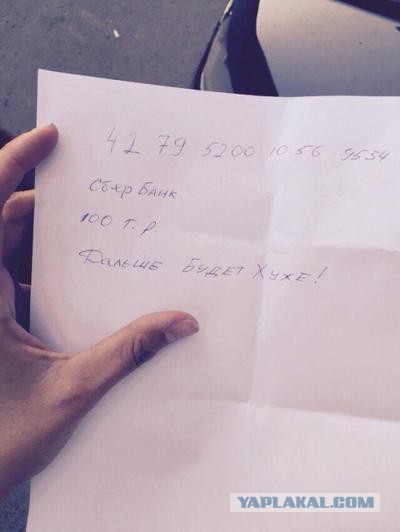 42 79 5200 10 56 9534
Сбер Банк
100 т.р.
Дальше будет хуже!
YAPLAKAL.COM